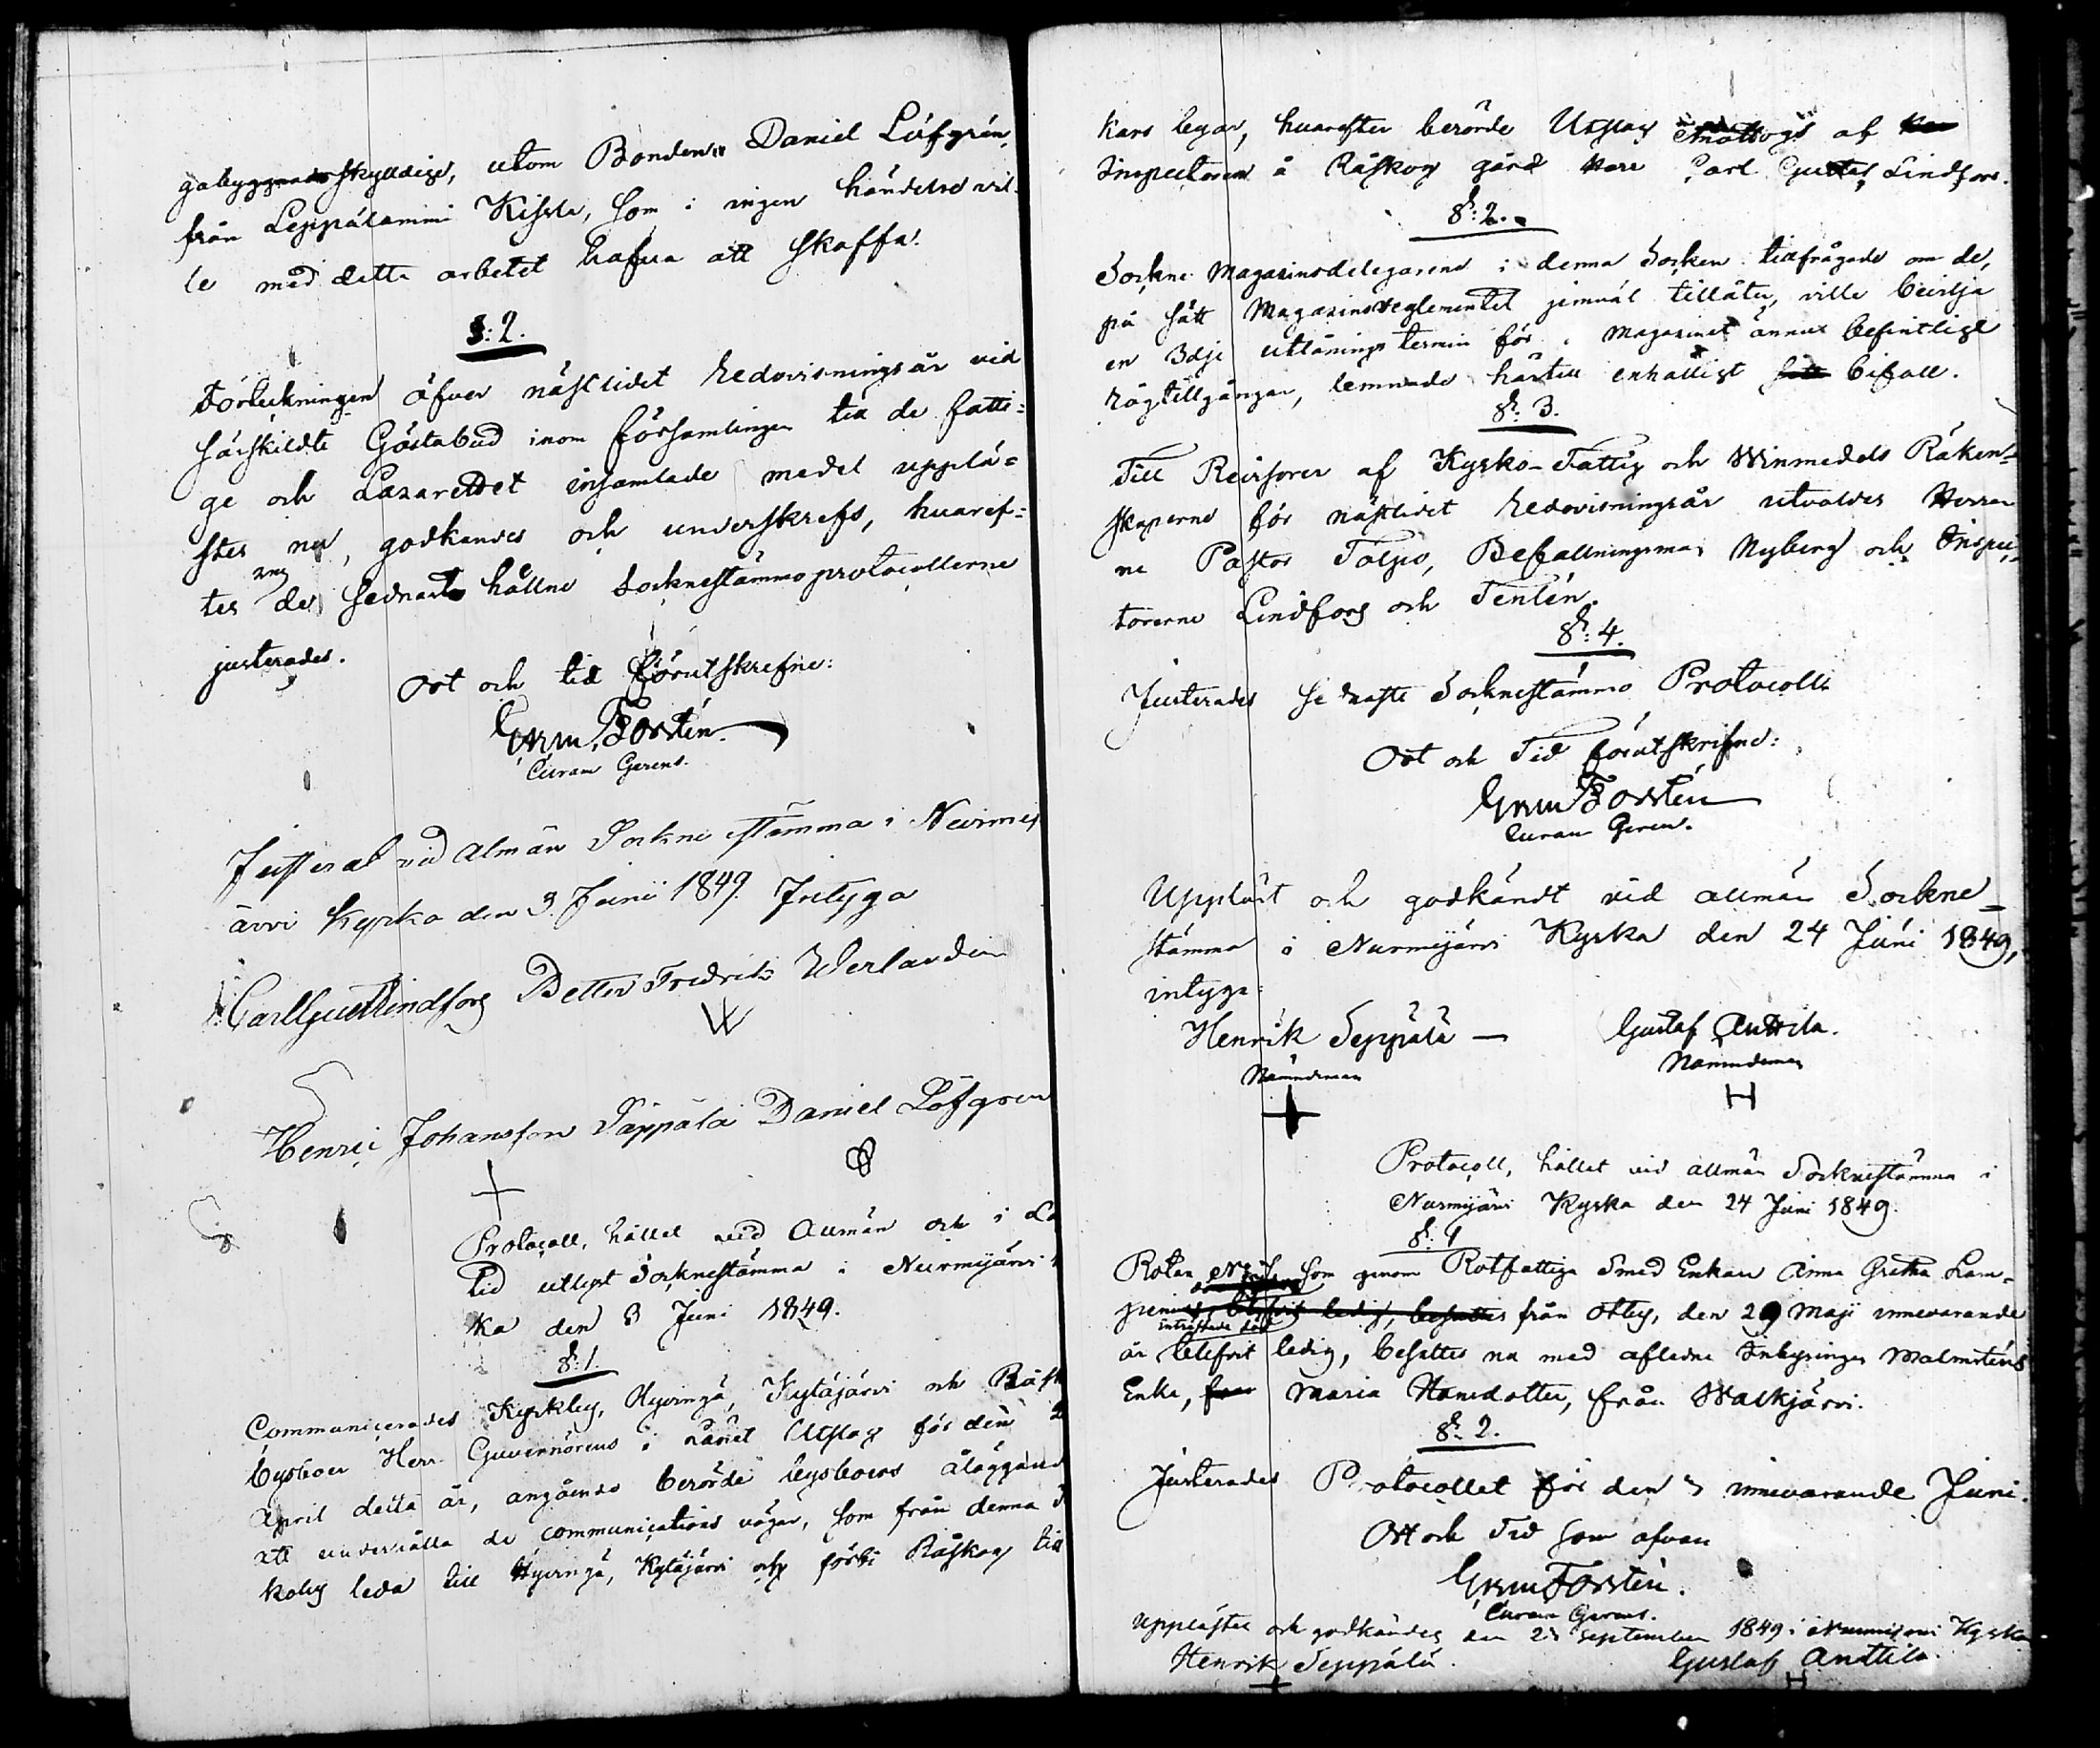 gabyggnads skyldige, utom Bonden Daniel Löfgrén,
från Leppälammi Kissla, som i ingen händelse vil-
le med detta arbetet hafva att skaffa.
§: 2.
Förteckningen öfver nästlidet Redovisningsår vid
särskildte Gästabud inom församlingen till de fatti=
ge och Lazarettet insamlade medel upplä=
stes nu, godkändes och underskrefs, hvaref=
ter de sednast hållne Socknestämmo protocollerne
justerades.
Ort och tid förutskrefne:
Grm Forstén
Curam Gerens.
Justerat vid Alman Sockne stämma i Nurmij
ärvi Kyrka den 3. Junii 1849. Intyga
Carl Gust Lindfors Petter Fredrik Verlander
Henric Johansson Säppälä Daniel Löfgren
Protocoll, hållet vid Allmän och i La
tid utlyst Socknestämma i Nurmijärvi
ka den 3 Juni 1849.
§: 1.
Communicerades Kyrkby, Hyvingä, Kytäjärvi och Råsk
byboer Herr Guvernörens i Länet Utslag för den 2
April detta år, angående berörde bysboers åläggand
att underhålla de communications vägar, som från denna
koby leda till Hyvingä, Kytäjärvi och förbi Råskog till
kars byar, hvarefter berörde Utslag emottogs af
Inspectoren å Råskog gård Herr Carl Gustaf Lindfors.
§: 2.
Sockne Magasinsdelegarene i denna Socken tillfrågade om de,
på sätt Magasinsreglementet jemväl tillåter, ville bevilja
en 3dje utlånings termin för i Magasinet ännu befintlige
rågtillgången, lemnade härtill enhälligt bifall.
§: 3.
Till Revisorer af Kyrko- Fattig och Winmedels Räken-
skaperne för nästlidet Redovisningsår utvaldes Herrar
ne Pastor Tolpo, Befallningsman Nyberg och Inspec-
torerne Lindfors och Tenlén.
§: 4.
Justerades sednaste Socknestämmo Protocoll
Ort och Tid förutskrifne:
Grm Forstén
Curam Geren.
Uppläst och godkändt vid allmän Sockne=
stämma i Nurmijärvi Kyrka den 24 Juni 1849,
intyga:
Henrik Seppälä — Gustaf Anttila.
Nämndeman Nämndeman
H
Protocoll, hållet vid allmän Socknestämma i
Nurmijärvi Kyrka den 24 Juni 1849.
§: 1
Rotan som genom Rotfattiga Smed Enkan Anna Gretha Lam=
inträffade död
från Otby, den 29 Maji innevarande
år blifvit ledig, besattes nu med afledne Inhysingen Malmsténs
Enka, Maria Hansdotter, från Walkjärvi.
§: 2.
Justerades Protocollet för den 3 innevarande Juni.
Ort och Tid som ofvan
Grm Forstén.
Curam Gerens.
Upplästes och godkändes den 23 September 1849 i Nurmijärvi Kyrka
Henrik Seppälä. Gustaf Anttila.
H